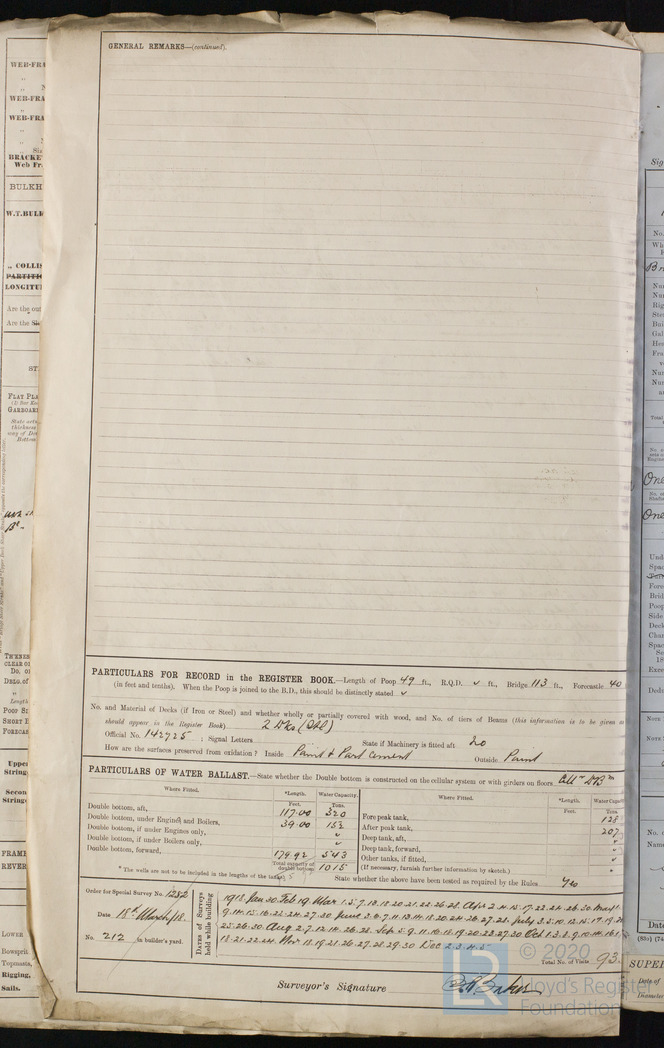 GENERAL REMARKS—(continued).
PARTICULARS FOR RECORD in the REGISTER BOOK.—Length of Poop 49 ft., R.Q.D. ✓ ft., Bridge 113 ft., Forecastle 40
(in feet and tenths). When the Poop is joined to the B.D., this should be distinctly stated ✓
No. and Material of Decks (if Iron or Steel) and whether wholly or partially covered with wood, and No. of tiers of Beams (this information is to be given as
should appear in the Register Book) 2 Dks (Stl)
Official No. 142725 ; Signal Letters State if Machinery is fitted aft No
How are the surfaces preserved from oxidation? Inside Paint & Part Cement Outside Paint
PARTICULARS OF WATER BALLAST.—State whether the Double bottom is constructed on the cellular system or with girders on floors Cellr DBm
Where Fitted. *Length. Water Capacity. Where Fitted. *Length. Water Capacity
Feet. Tons. Feet. Tons.
Double bottom, aft, 117.00 320 Fore peak tank, 128
Double bottom, under Engines and Boilers, 39.00 152 After peak tank, 207
Double bottom, if under Engines only, " Deep tank, aft, "
Double bottom, if under Boilers only, " Deep tank, forward, "
Double bottom, forward, 179.92 543 Other tanks, if fitted, "
Total capacity of double bottom 1015 (If necessary, furnish further information by sketch.)
* The wells are not to be included in the lengths of the tanks. State whether the above have been tested as required by the Rules Yes
Order for Special Survey No. 1282
Date 18th March/18.
No. 212 in builder's yard.
Dates of Surveys held while building
1918 Jan 30 Feb 19 Mar 1.5.7.13.18.20.21.22.26.28. Apr 2.4.15.17.22.24.26.30 May 1.
9.14.15.16.22.24.27.30 June 3.6.7.11.13.14.18.20.24.26.27.28. July 3.5.10.12.15.17.19.24
25.26.30 Aug 2.7.12.14.26.28. Sep 5.9.11.16.18.19.20.23.27.30 Oct 1.3.8.9.10.14.16.1
18.21.22.24. Nov 18.19.21.26.27.28.29.30 Dec 2.3.4.5
Total No. of Visits 93
Surveyor's Signature
© 2020
Lloyd's Register
Foundation
LR